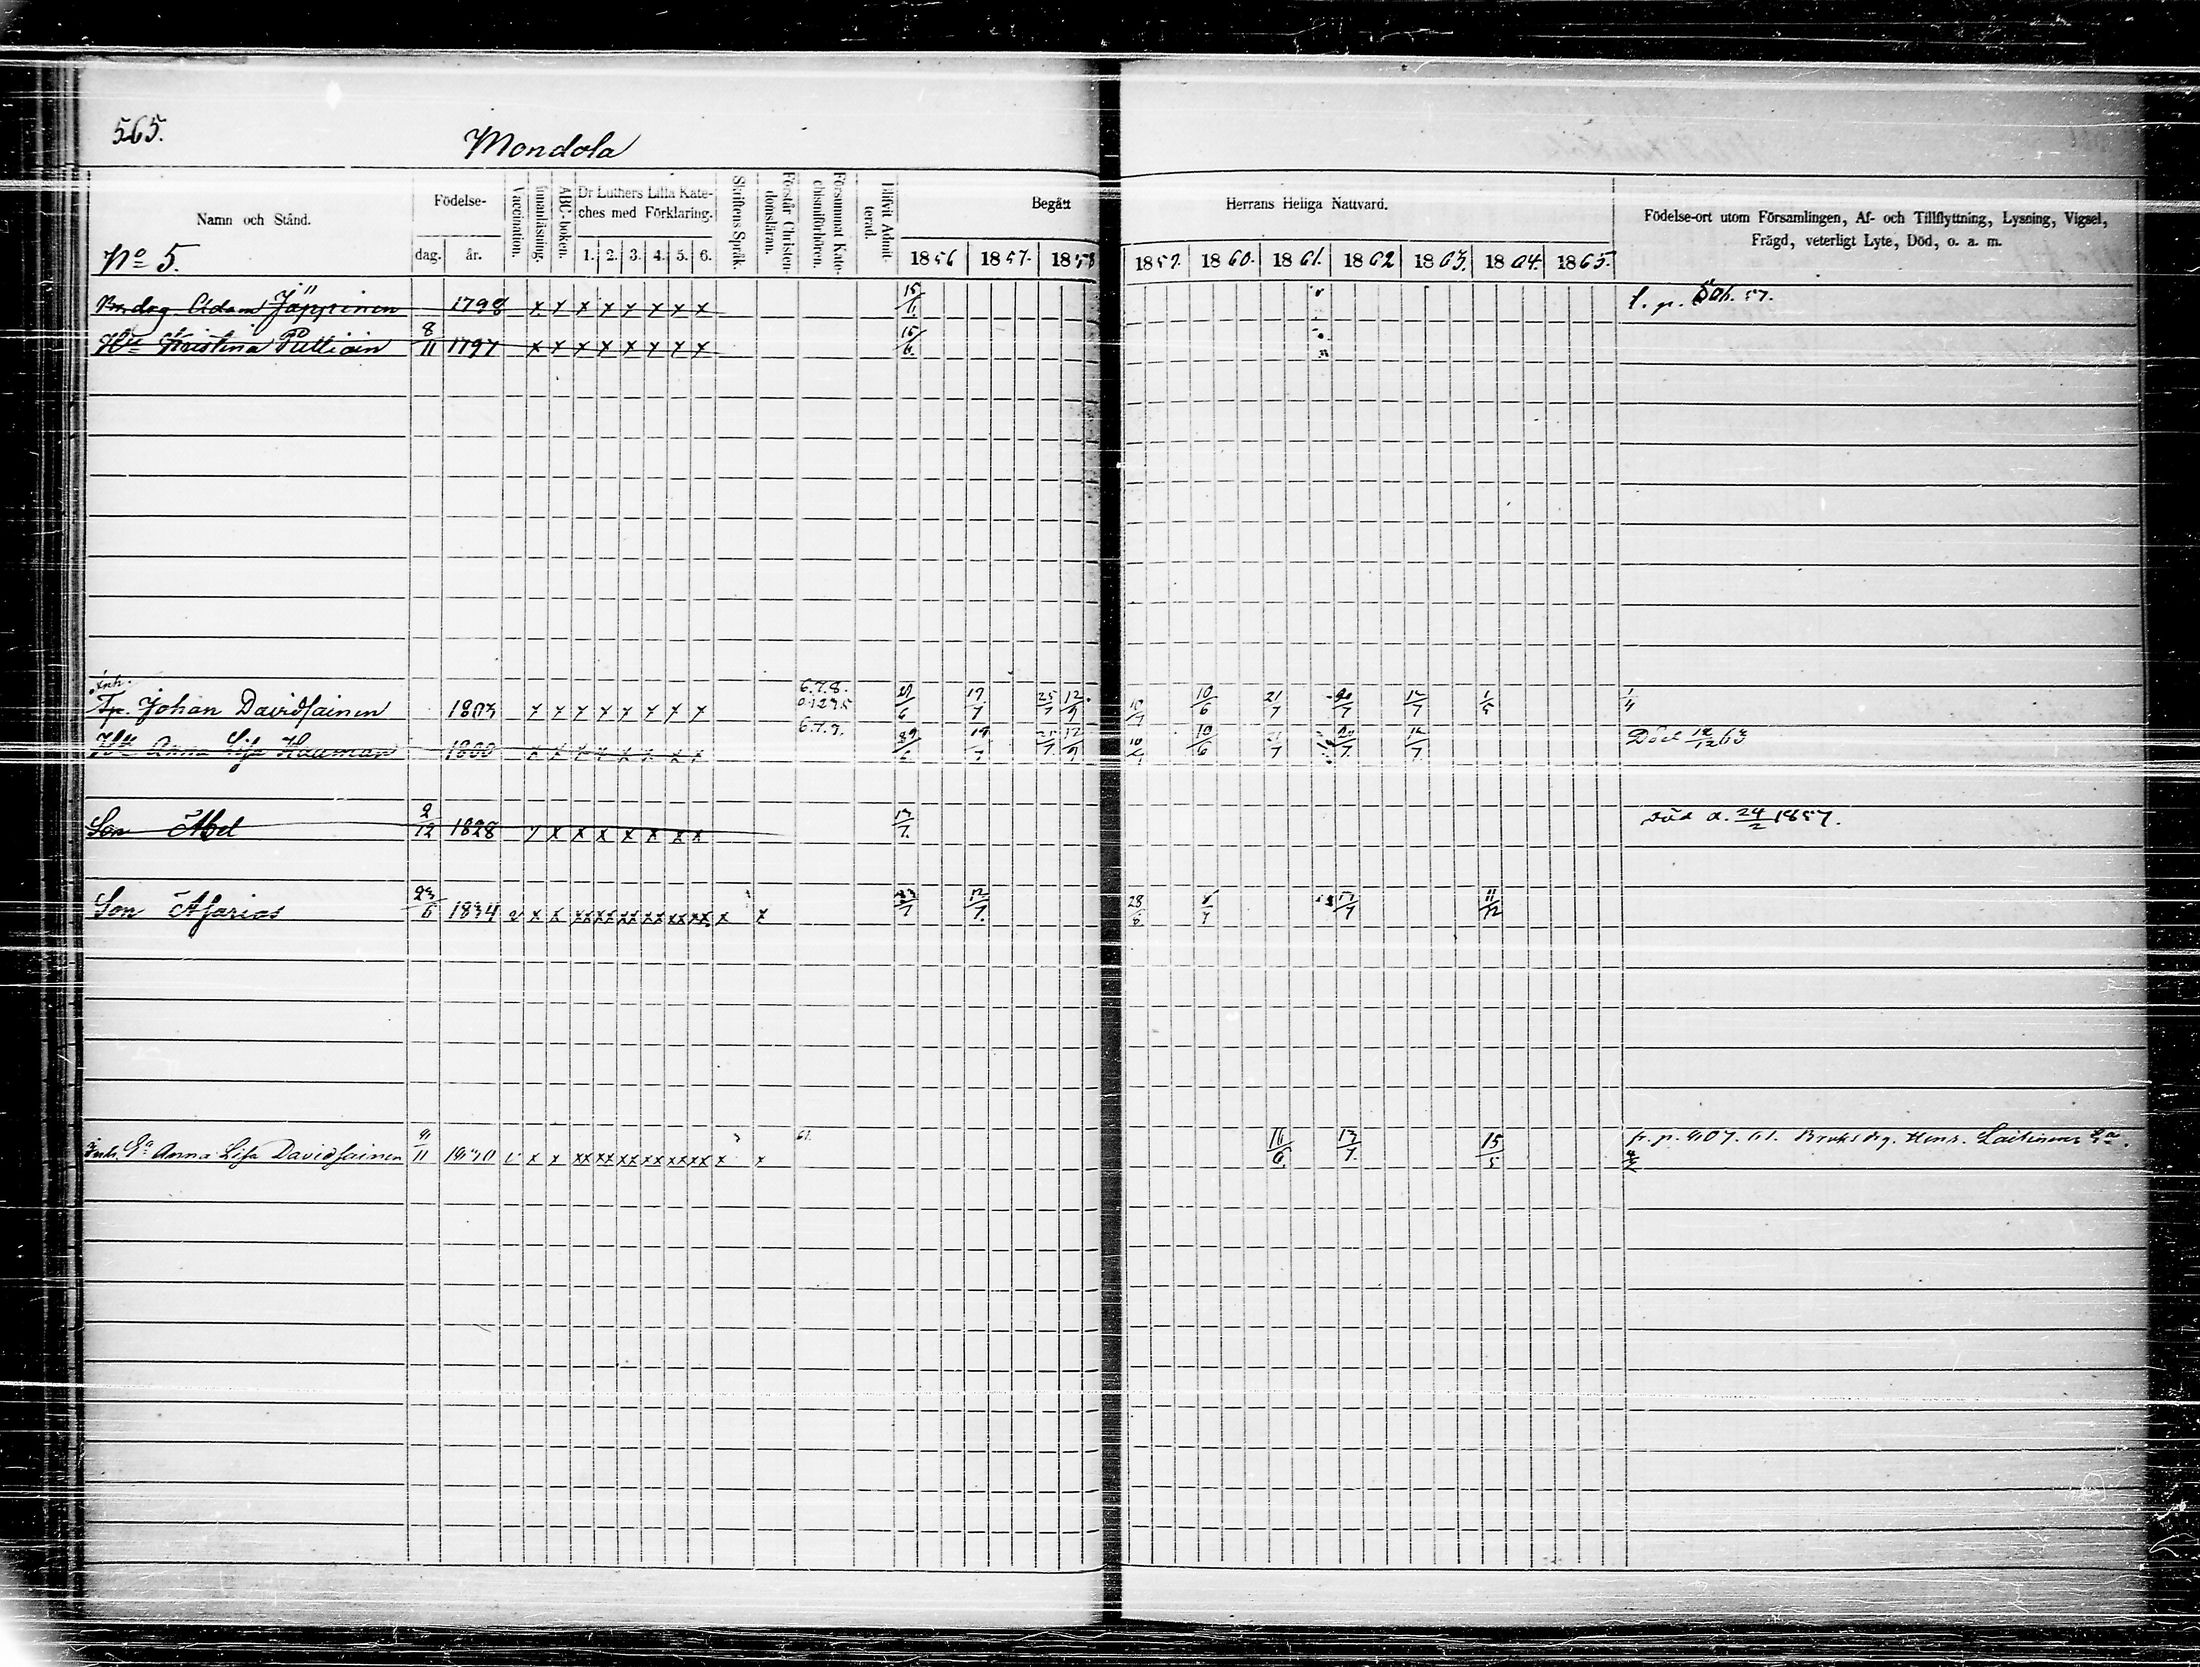 565.
Mondola
Namn och Stånd.
Födelse-
dag.
år.
Vaccination.
Innanläsning.
ABC-boken.
Dr Luthers Lilla Kate-
ches med Förklaring.
1. 2. 3. 4. 5. 6.
Skriftens Språk.
Förstår Christen-
domsläran.
Försummat Kate-
chismiförhören.
Blifvit Admit-
terad.
Begått Herrans Heliga Nattvard.
1856 1857. 1858 1859. 1860. 1861. 1862 1863. 1864. 1865.
Födelse-ort utom Församlingen, Af- och Tillflyttning, Lysning, Vigsel,
Frägd, veterligt Lyte, Död, o. a. m.
No 5.
Adam Jäppinen 1798 x x x x x x x x 15/6. t. p. 57.
Hu Kristina Pulliain 8/11 1797 x x x x x x x x 15/6.
Inh.
Johan Davidsainen 1803 x x x x x x x x 6.7.8. 19/7 25/7 12/9 10/7 10/6 21/7 20/7 12/7 1/5
Hu Anna Lisa Hauman 1800 x x x x x x x x 6.7.9. 19/7 25/7 12/9 10/7 10/6 21/7 20/7 12/7 Död 12/12 63
Son Abel 2/12 1828 x x x x x x x x 17/7. Död d. 24/2 1857.
Son Asarias 23/6 1834 v x x xx xx xx xx xx xx x x 23/7 12/7. 28/6. 17/7 11/12
Inh. Ea Anna Lisa Davidsainen 9/11 1830 v x x xx xx xx xx xx xx x x 61. 16/6. 17/7. 15/5 fr. p. 61. Bruksdrg. Henr. Laitinens Ea.